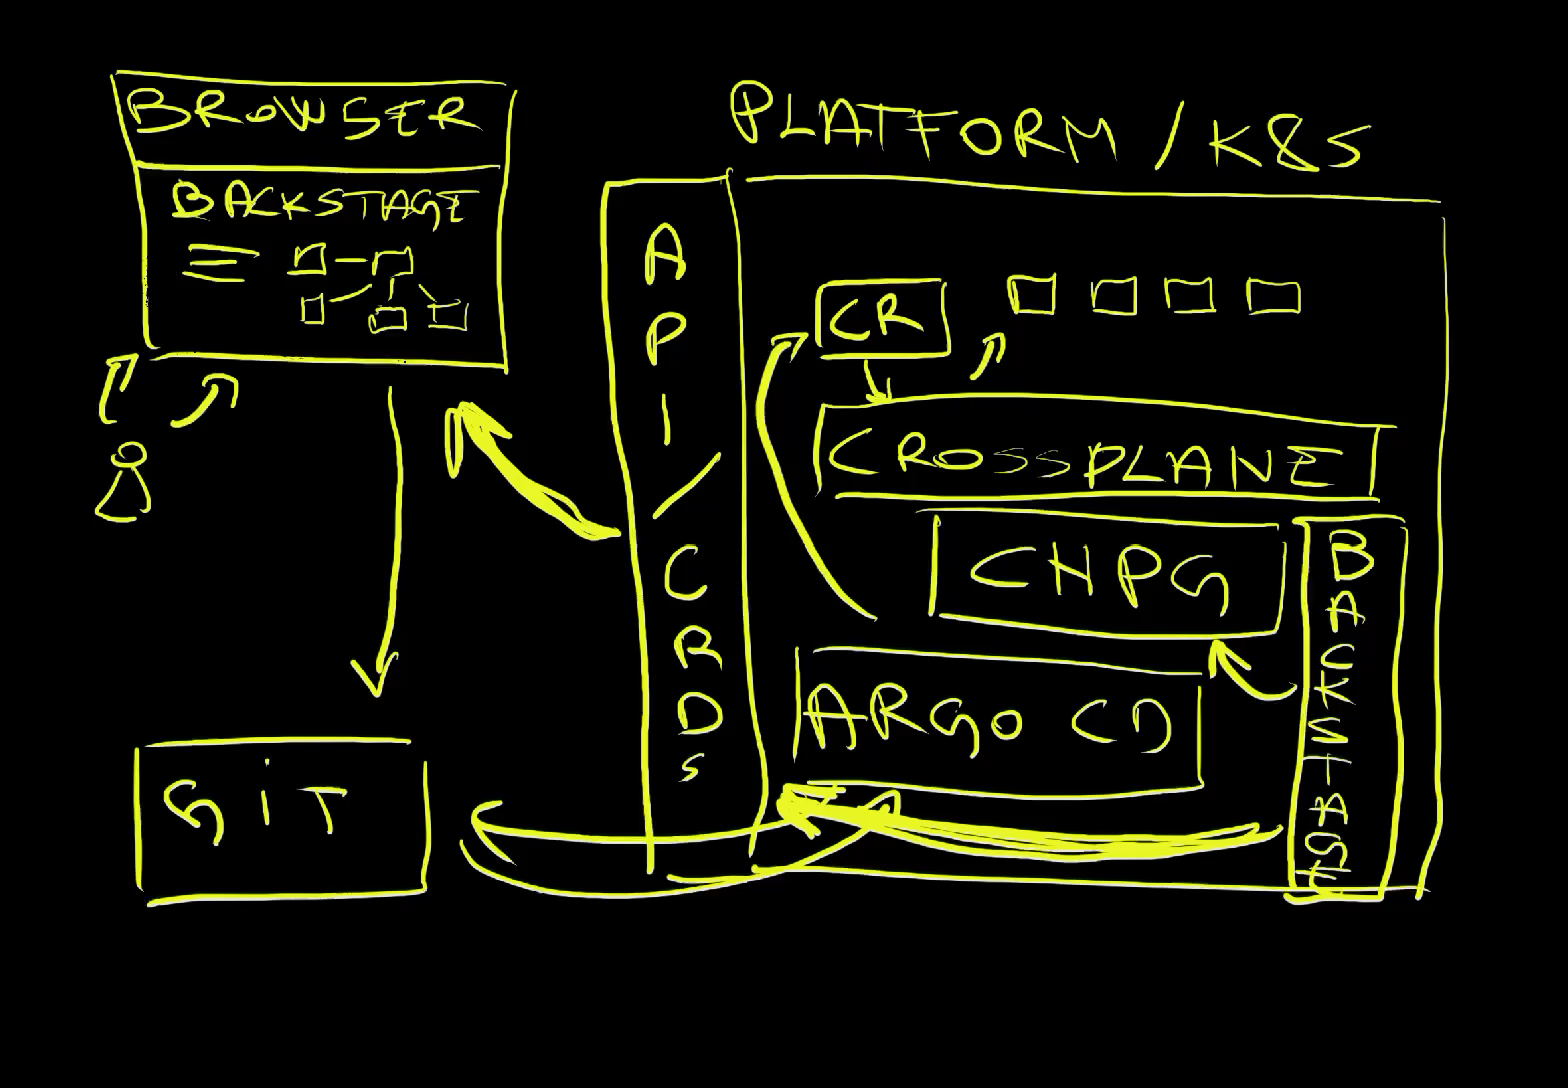 BROWSER
BACKSTAGE
PLATFORM / K8S
API/CRDs
CR
CROSSPLANE
CNPG
BACKSTAGE
ARGO CD
GiT